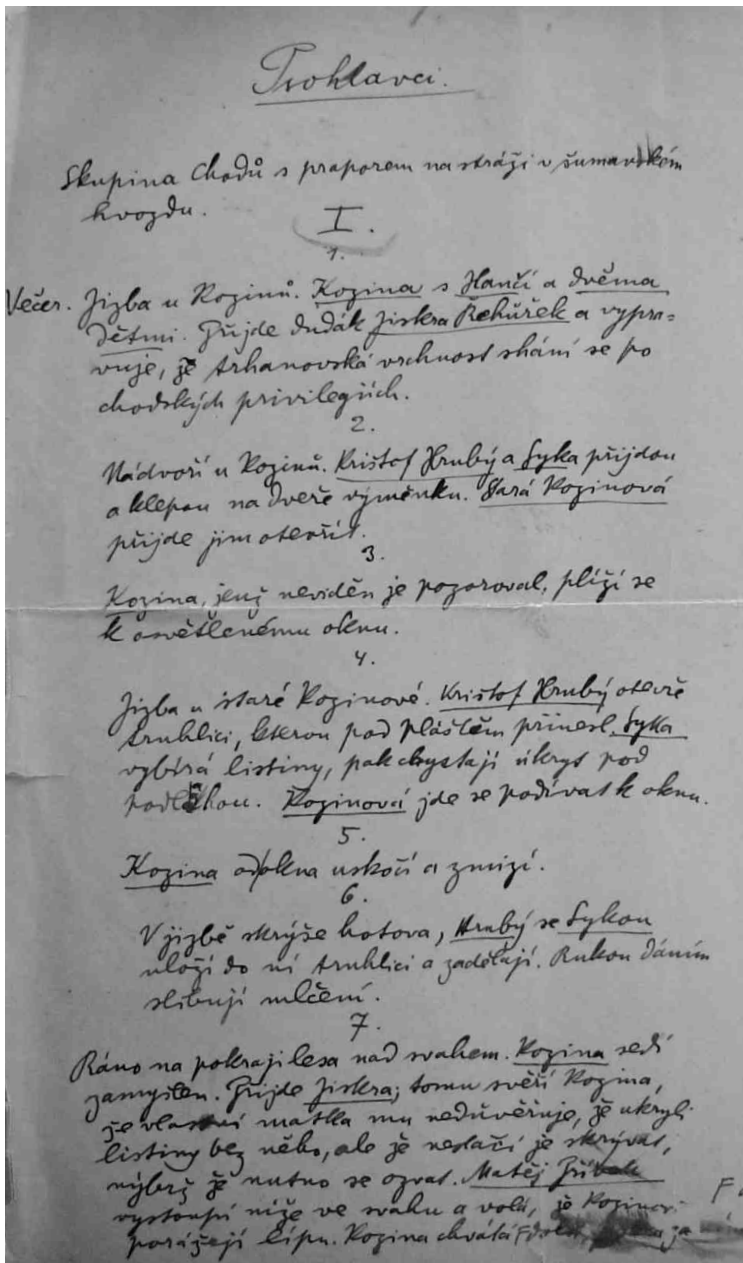 Psohlavci.
Skupina Chodů s praporem na stráži v šumavském
hvozdu.
I.
1.
Večer. Jizba u Kozinů. Kozina s Hančí a dvěma
dětmi. Přijde dudák Jiskra Řehůřek a vypra-
vuje, že trhanovská vrchnost shání se po
chodských privilegiích.
2.
Nádvoří u Kozinů. Krištof Hrubý a Syka přijdou
a klepou na dveře výměnku. Stará Kozinová
přijde jim otevřít.
3.
Kozina, jenž neviděn je pozoroval, plíží se
k osvětlenému oknu.
4.
Jizba u staré Kozinové. Krištof Hrubý otevře
truhlici, kterou pod pláštěm přinesl, Syka
vybírá listiny, pak chystají úkryt pod
podlahou. Kozinová jde se podívat k oknu.
5.
Kozina od okna uskočí a zmizí.
6.
V jizbě skrýše hotova, Hrubý se Sykou
uloží do ní truhlici a zadělají. Rukou dáním
slibují mlčení.
7.
Ráno na pokraji lesa nad svahem. Kozina sedí
zamyšlen. Přijde Jiskra; tomu svěří Kozina,
že vlastní matka mu nedůvěřuje, že ukryli
listiny bez něho, ale že nestačí je skrývat,
nýbrž že nutno se ozvat. Matěj Přibek
vystoupí níže ve svahu a volá, že Kozinovi
porážejí lípu. Kozina chvátá dolů,